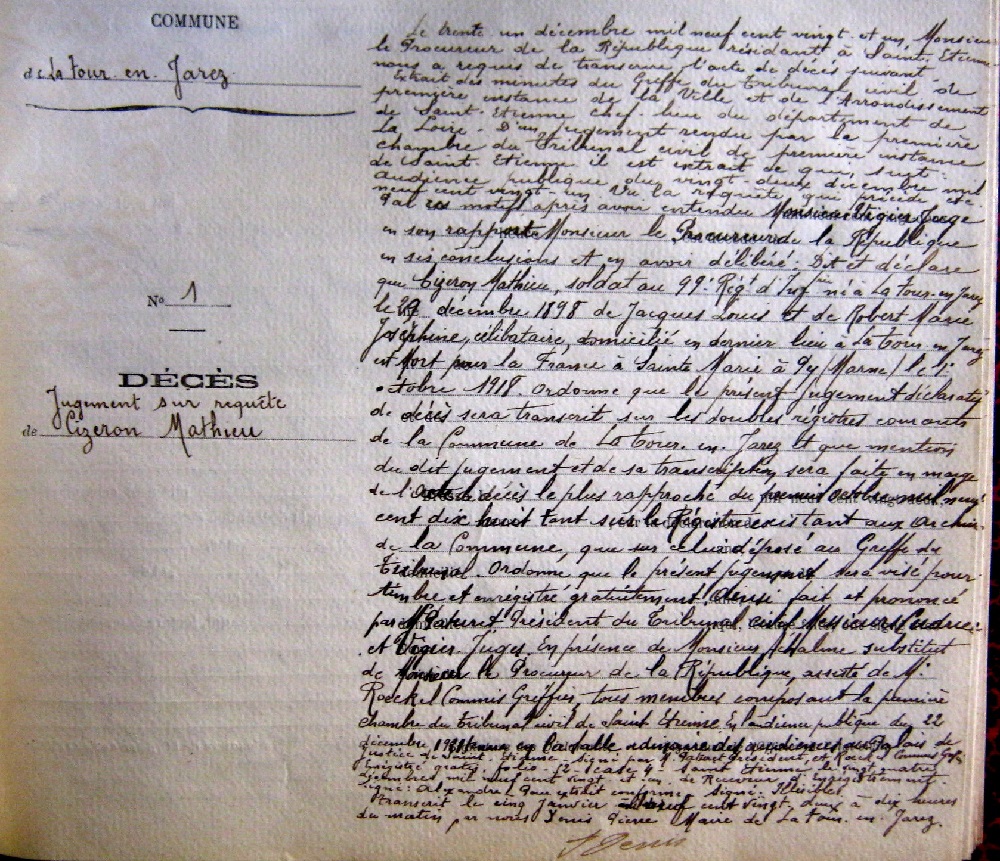 COMMUNE
de La Tour. en. Jarez
Nº 1
DÉCÈS
Jugement sur requête
de Cizeron Mathieu
Le trente un décembre mil neuf cent vingt et un, Monsieur
le Procureur de la République résidant à Saint. Etienne
nous a requis de transcrire l'acte de décès suivant
Extrait des minutes du Greffe du Tribunal civil de
première instance de la Ville et de l'Arrondissement
de Saint. Etienne chef. lieu du département de
La Loire. D'un jugement rendu par la première
chambre du Tribunal civil de première instance
de Saint. Etienne il est extrait ce qui suit.
Audience publique du vingt. deux décembre mil
neuf cent vingt. un. Vu la requête qui précède etc
Par ces motifs après avoir entendu Monsieur Vigier Juge
en son rapport Monsieur le Procureur de la République
en ses conclusions et en avoir délibéré. Dit et déclare
que Cizeron Mathieu, soldat au 99e Régt d'Infie né à La Tour. en. Jarez
le décembre 1898 de Jacques Louis et de Robert Marie
Joséphine, célibataire, domicilié en dernier lieu à La Tour en Jarez
est Mort pour la France à Sainte Marie à Py (Marne) le 1er
octobre 1918. Ordonne que le présent jugement déclaratif
de décès sera transcrit sur les doubles registres courants
de la Commune de La Tour. en. Jarez et que mention
du dit jugement et de sa transcription sera faite en marge
de l'acte de décès le plus rapproché du premier octobre mil neuf
cent dix huit tant sur le Régistre existant aux archives
de la Commune, que sur celui déposé au Greffe du
Tribunal. Ordonne que le présent jugement sera visé pour
timbre et enregistré gratuitement. Ainsi fait et prononcé
par Président du Tribunal civil Messieurs
et Vigier Juges. En présence de Monsieur substitut
de Monsieur le Procureur de la République, assisté de M.
Roeckel Commis Greffier, tous membres composant la première
chambre du Tribunal civil de Saint Etienne En l'audience publique du 22
décembre 1921 tenue en la salle ordinaire des audiences au Palais de
Justice de Saint. Etienne. Signé par M. Président, et Roeckel Commis Greffier
Enregistré gratis folio case Saint Etienne le vingt quatre
décembre mil neuf cent vingt et un. Le Receveur d'Enregistrement
signé: Alexandre. Pour extrait conforme signé: Illisible
Transcrit le cinq Janvier mil neuf cent vingt. deux à dix heures
du matin par nous Denis Pierre Maire de La Tour. en. Jarez.
Denis